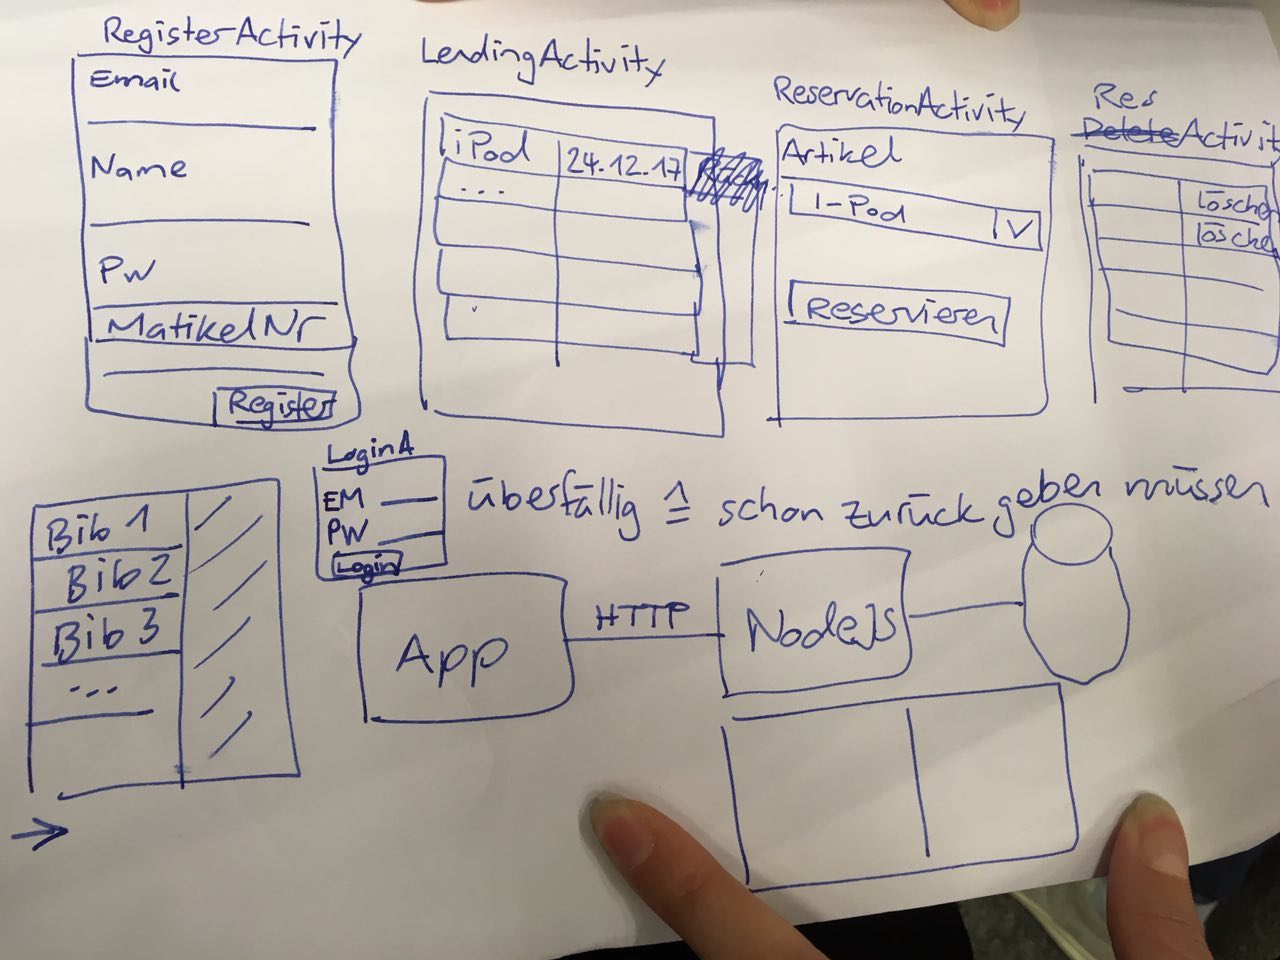 RegisterActivity
Email
Name
PW
MatikelNr
Register
LendingActivity
iPod 24.12.17
...
ReservationActivity
Artikel
I-Pod
Reservieren
Res
Delete Activit
löschen
löschen
Bib 1
Bib 2
Bib 3
...
LoginA
EM
PW
Login
überfällig ≙ schon zurück geben müssen
App
HTTP
NodeJs